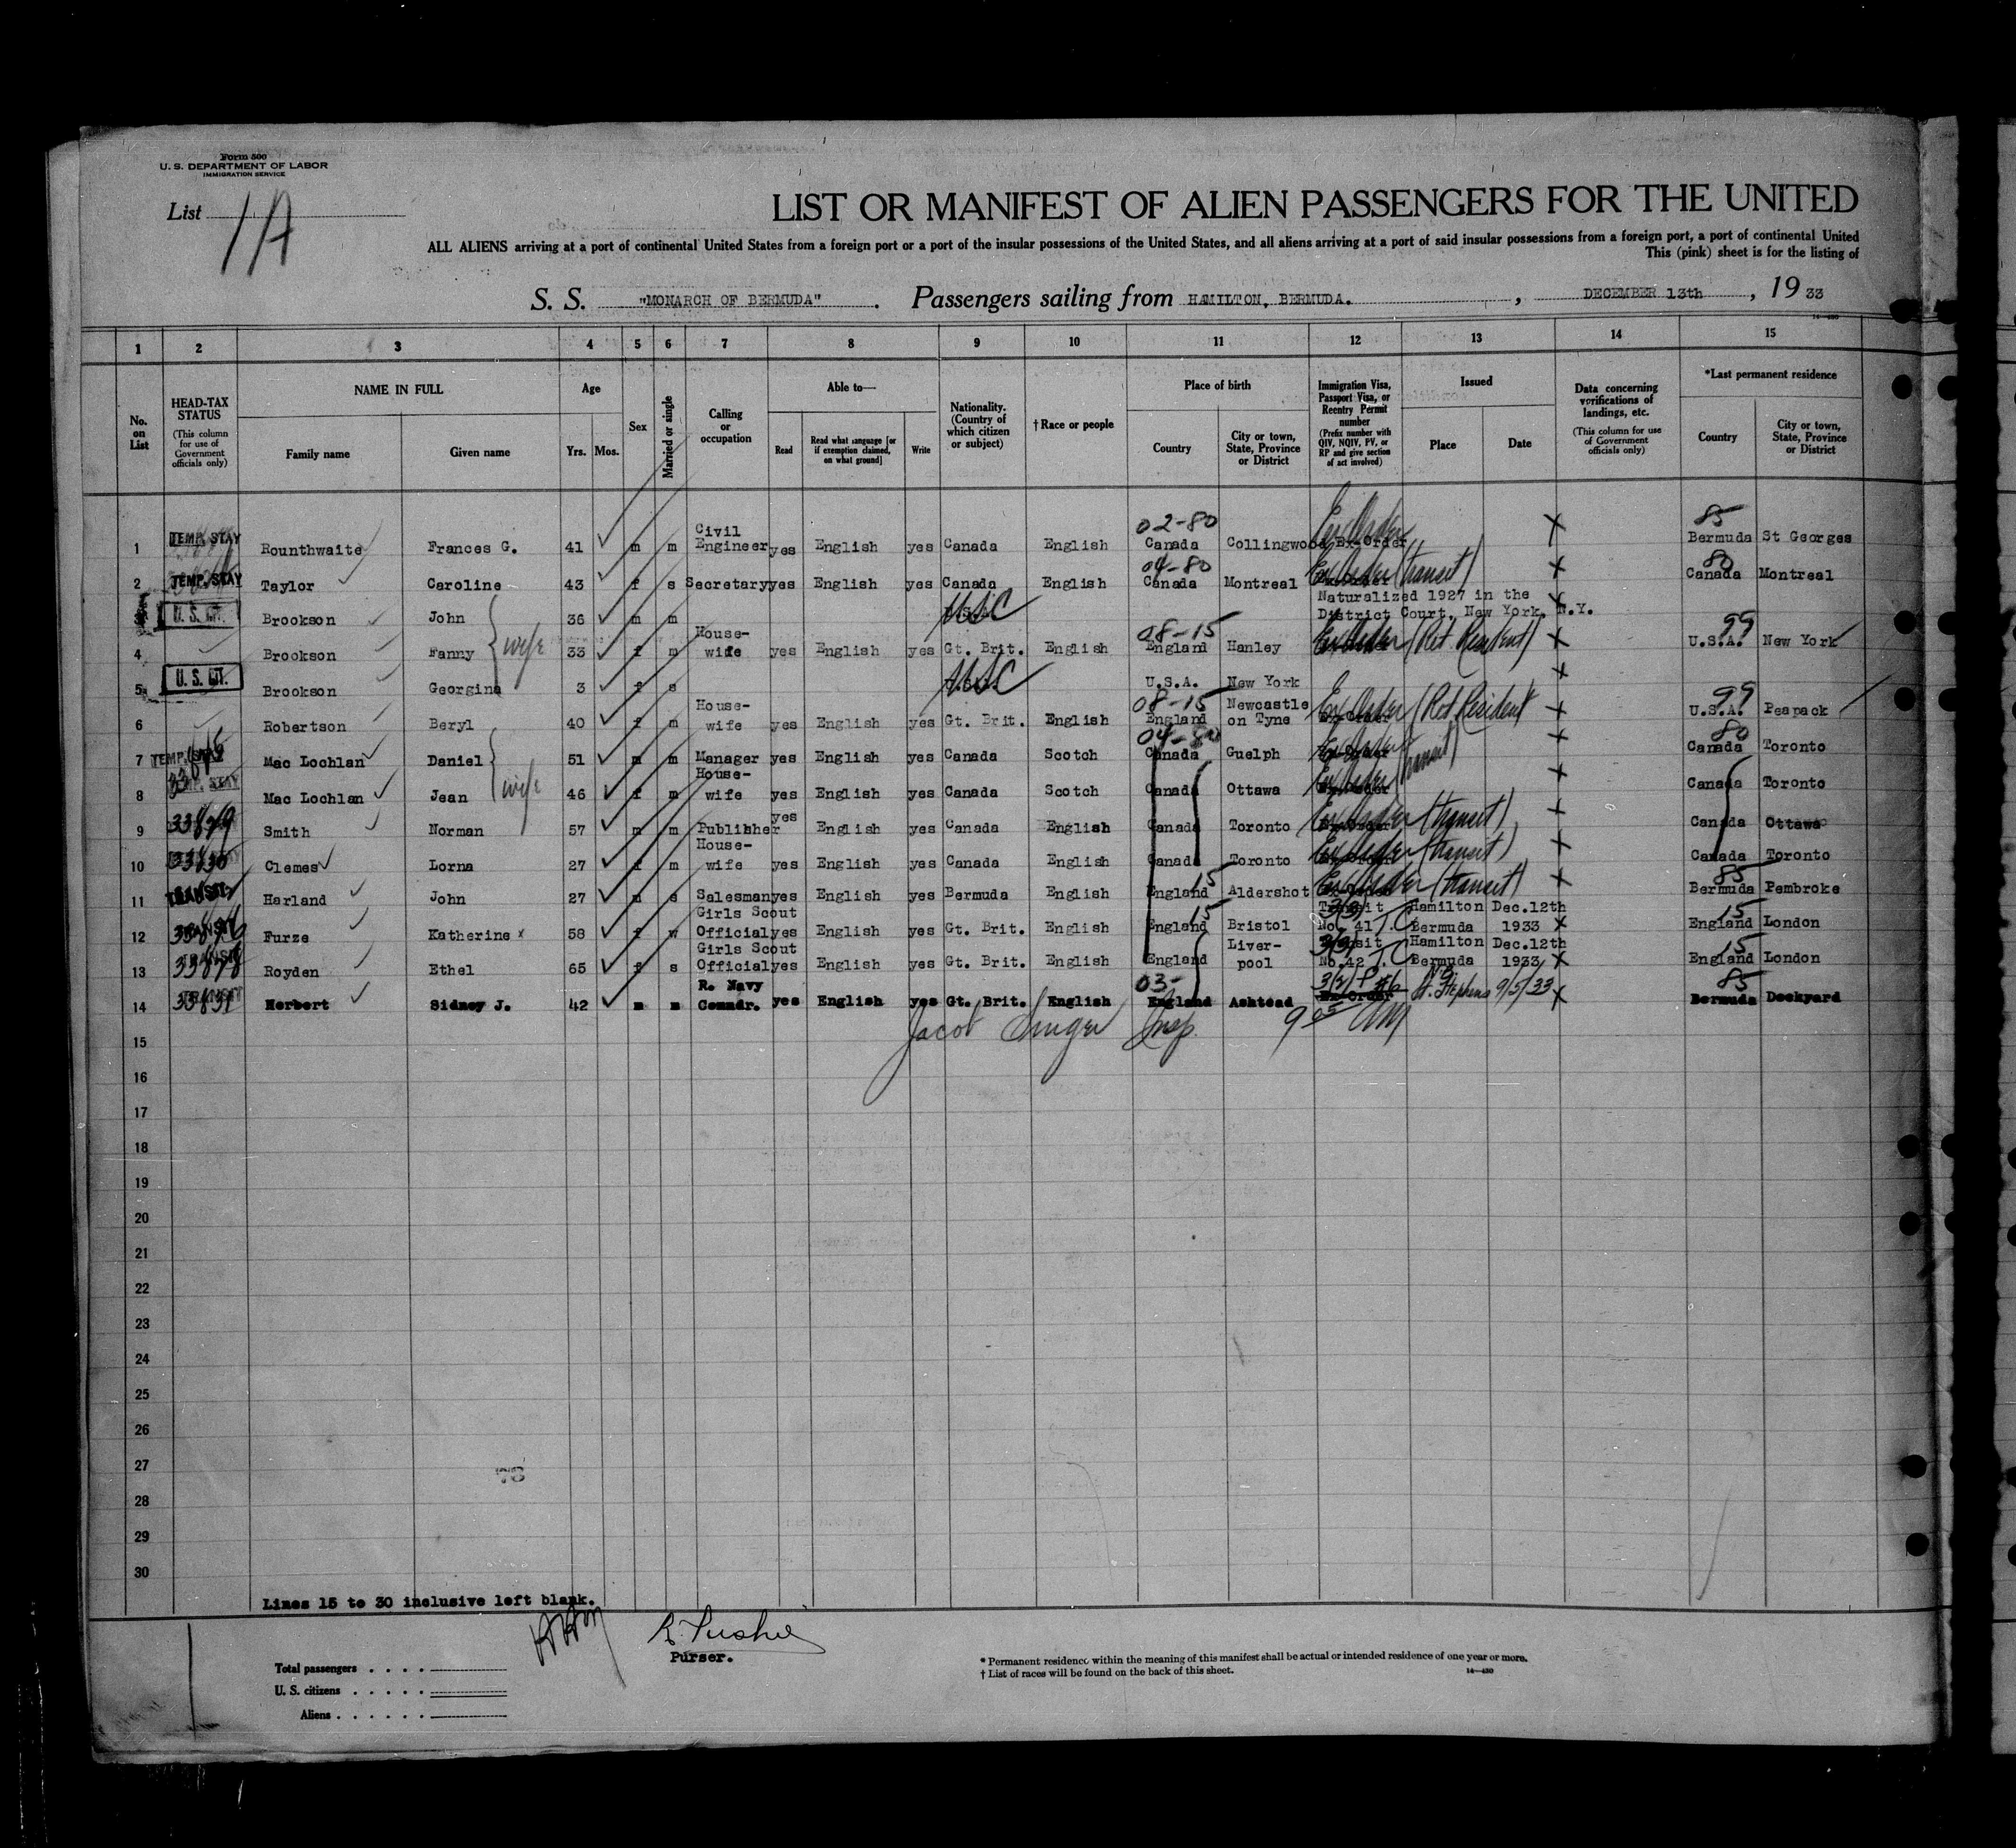 Form 500
U. S. DEPARTMENT OF LABOR
IMMIGRATION SERVICE
List 1A
LIST OR MANIFEST OF ALIEN PASSENGERS FOR THE UNITED
ALL ALIENS arriving at a port of continental United States from a foreign port or a port of the insular possessions of the United States, and all aliens arriving at a port of said insular possessions from a foreign port, a port of continental United
This (pink) sheet is for the listing of
S. S. "MONARCH OF BERMUDA" . Passengers sailing from HAMILTON, BERMUDA. , DECEMBER 13th , 19 33
14—430
1 2 3 4 5 6 7 8 9 10 11 12 13 14 15
No. on List
HEAD-TAX STATUS (This column for use of Government officials only)
NAME IN FULL
Family name Given name
Age
Yrs. Mos.
Sex
Married or single
Calling or occupation
Able to—
Read
Read what language [or if exemption claimed, on what ground]
Write
Nationality. (Country of which citizen or subject)
† Race or people
Place of birth
Country
City or town, State, Province or District
Immigration Visa, Passport Visa, or Reentry Permit number (Prefix number with QIV, NQIV, PV, or RP and give section of act involved)
Issued
Place Date
Data concerning verifications of landings, etc. (This column for use of Government officials only)
*Last permanent residence
Country
City or town, State, Province or District
1 TEMP. STAY Rounthwaite Frances G. 41 m m Civil Engineer yes English yes Canada English 02-80 Canada Collingwood Ex Order X 85 Bermuda St Georges
2 TEMP. STAY Taylor Caroline 43 f s Secretary yes English yes Canada English 04-80 Canada Montreal Ex Order (transit) X 80 Canada Montreal
3 U. S. CIT. Brookson John 36 m m USC Naturalized 1927 in the District Court, New York, N.Y.
4 Brookson Fanny wife 33 f m House-wife yes English yes Gt. Brit. English 08-15 England Hanley Ex Order (Ret Resident) X 99 U.S.A. New York
5 U. S. CIT. Brookson Georgina 3 f s USC U.S.A. New York X
6 Robertson Beryl 40 f m House-wife yes English yes Gt. Brit. English 08-15 England Newcastle on Tyne Ex Order (Ret Resident X 99 U.S.A. Peapack
7 TEMP. STAY Mac Lochlan Daniel 51 m m Manager yes English yes Canada Scotch 04-80 Canada Guelph Ex Order (transit) X 80 Canada Toronto
8 TEMP. STAY Mac Lochlan Jean wife 46 f m House-wife yes English yes Canada Scotch Canada Ottawa Ex Order X Canada Toronto
9 33879 Smith Norman 57 m m Publisher yes English yes Canada English Canada Toronto Ex Order (transit) X Canada Ottawa
10 Clemes Lorna 27 f m House-wife yes English yes Canada English Canada Toronto Ex Order (transit) X Canada Toronto
11 TRANSIT Harland John 27 m s Salesman yes English yes Bermuda English 15 England Aldershot Ex Order (transit) X 85 Bermuda Pembroke
12 Furze Katherine x 58 f w Girls Scout Official yes English yes Gt. Brit. English 15 England Bristol Transit No. 41 T.C Hamilton Bermuda Dec.12th 1933 X 15 England London
13 33878 Royden Ethel 65 f s Girls Scout Official yes English yes Gt. Brit. English England Liver-pool Transit No.42 T.C Hamilton Bermuda Dec.12th 1933 X 15 England London
14 Herbert Sidney J. 42 m m R. Navy Commdr. yes English yes Gt. Brit. English 03- England Ashtead Ex Order St. Stephens 9/5/33 X 85 Bermuda Dockyard
15 Jacob Singer Insp. 9 05 AM
16
17
18
19
20
21
22
23
24
25
26
27
28
29
30
Lines 15 to 30 inclusive left blank.
Purser.
Total passengers
U. S. citizens
Aliens
* Permanent residence within the meaning of this manifest shall be actual or intended residence of one year or more.
† List of races will be found on the back of this sheet.
14—430